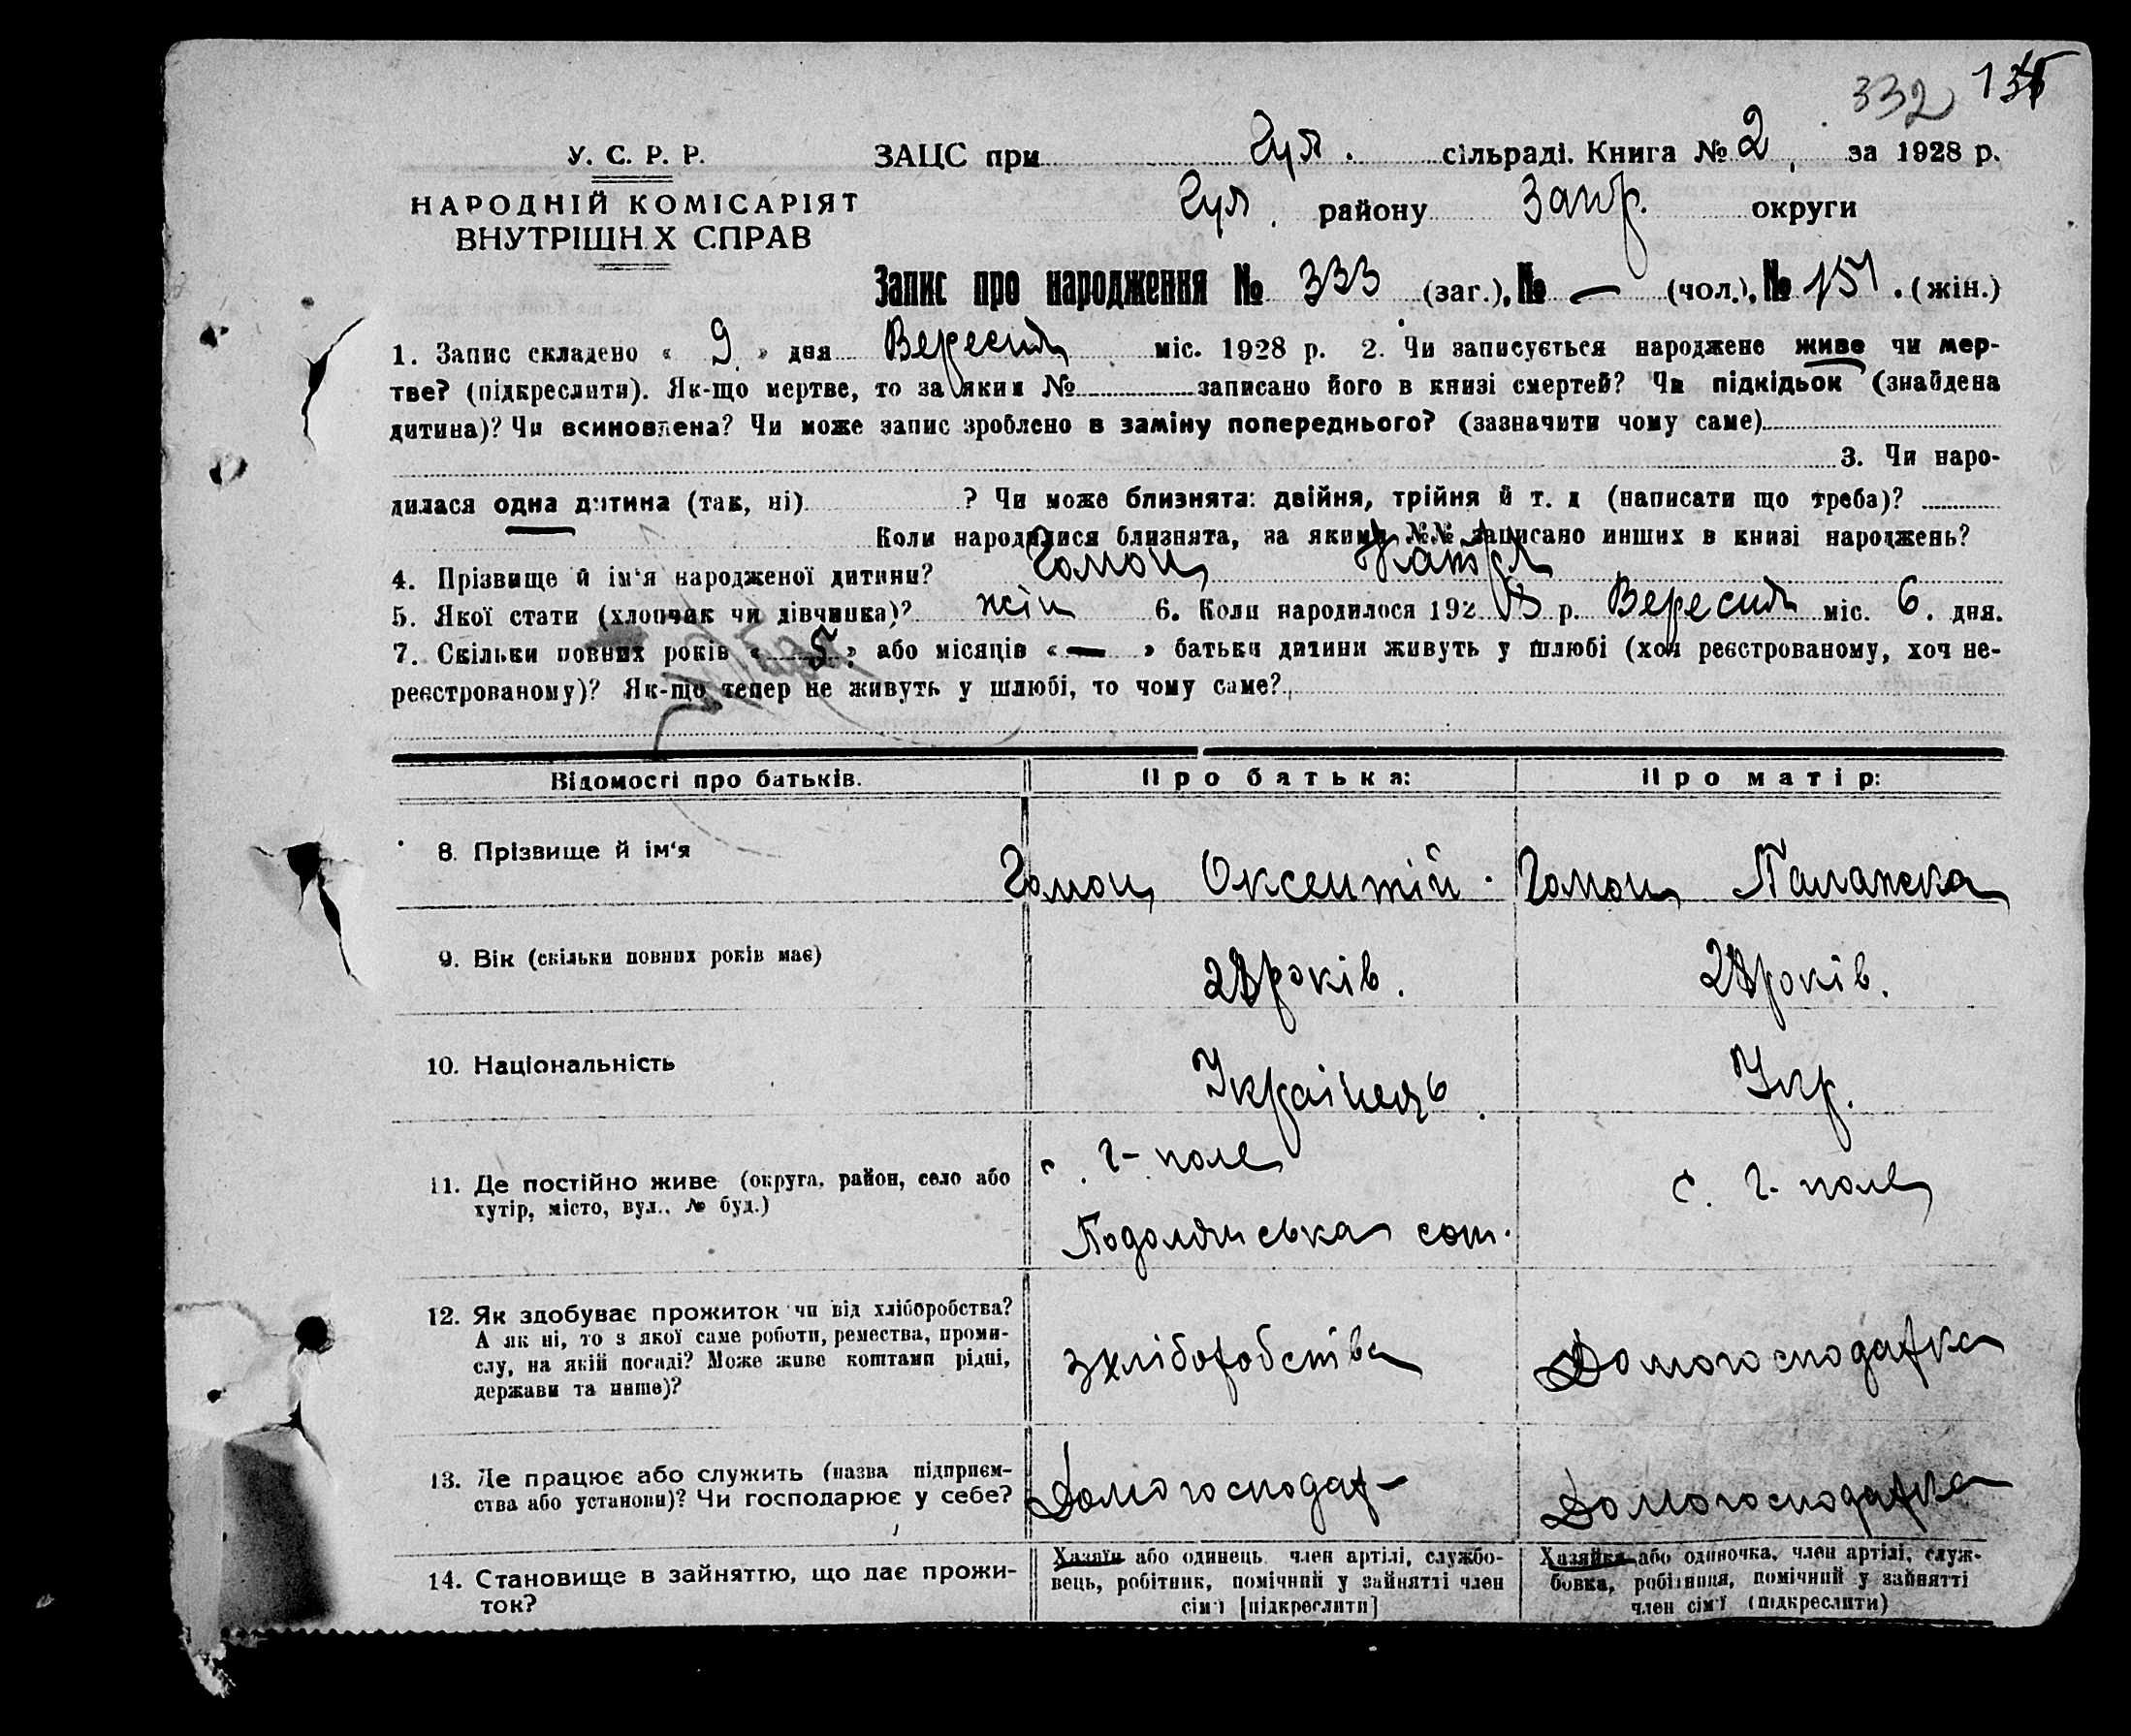 332 135
У. С. Р. Р.
НАРОДНІЙ КОМІСАРІЯТ
ВНУТРІШН Х СПРАВ
ЗАЦС при Гул. сільраді. Книга № 2, за 1928 р.
Гул. району Запор. округи
Запис про народження № 333 (заг.), № — (чол.), № 151. (жін.)
1. Запис складено « 9 » дня Вересня міс. 1928 р. 2. Чи записується народжене живе чи мер-
тве? (підкреслити). Як-що мертве, то за яким № записано його в книзі смертей? Чи підкідьок (знайдена
дитина)? Чи всиновлена? Чи може запис зроблено в заміну попереднього? (зазначити чому саме)
3. Чи наро-
дилася одна дитина (так, ні) ? Чи може близнята: двійня, трійня й т. д (написати що треба)?
Коли народилися близнята, за якими №№ записано инших в книзі народжень?
4. Прізвище й ім'я народженої дитини? Гомон
5. Якої стати (хлопчак чи дівчинка)? жін 6. Коли народилося 192 8 р. Вересня міс. 6. дня.
7. Скільки повних років « 5 » або місяців « — » батьки дитини живуть у шлюбі (хоч реєстрованому, хоч не-
реєстрованому)? Як-що тепер не живуть у шлюбі, то чому саме?
Відомості про батьків. Про батька: Про матір:
8. Прізвище й ім'я Гомон Оксентій. Гомон Палажка
9. Вік (скільки повних років має) 28 років. 28 років.
10. Національність Українець. Укр.
11. Де постійно живе (округа, район, село або
хутір, місто, вул., № буд.)
с. Г-поле
Подолянська сот.
с. Г-поле
12. Як здобуває прожиток чи від хліборобства?
А як ні, то з якої саме роботи, ремества, проми-
слу, на якій посаді? Може живе коштами рідні,
держави та инше)?
з хліборобства Домогосподарка
13. Де працює або служить (назва підприєм-
ства або установи)? Чи господарює у себе?
Домогосподар Домогосподарка
14. Становище в зайняттю, що дає прожи-
ток?
Хазяїн або одинець член артілі, службо-
вець, робітник, помічний у зайнятті член
сім'ї [підкреслити]
Хазяйка або одиночка, член артілі, служ-
бовка, робітниця, помічний у зайнятті
член сім'ї (підкреслити)